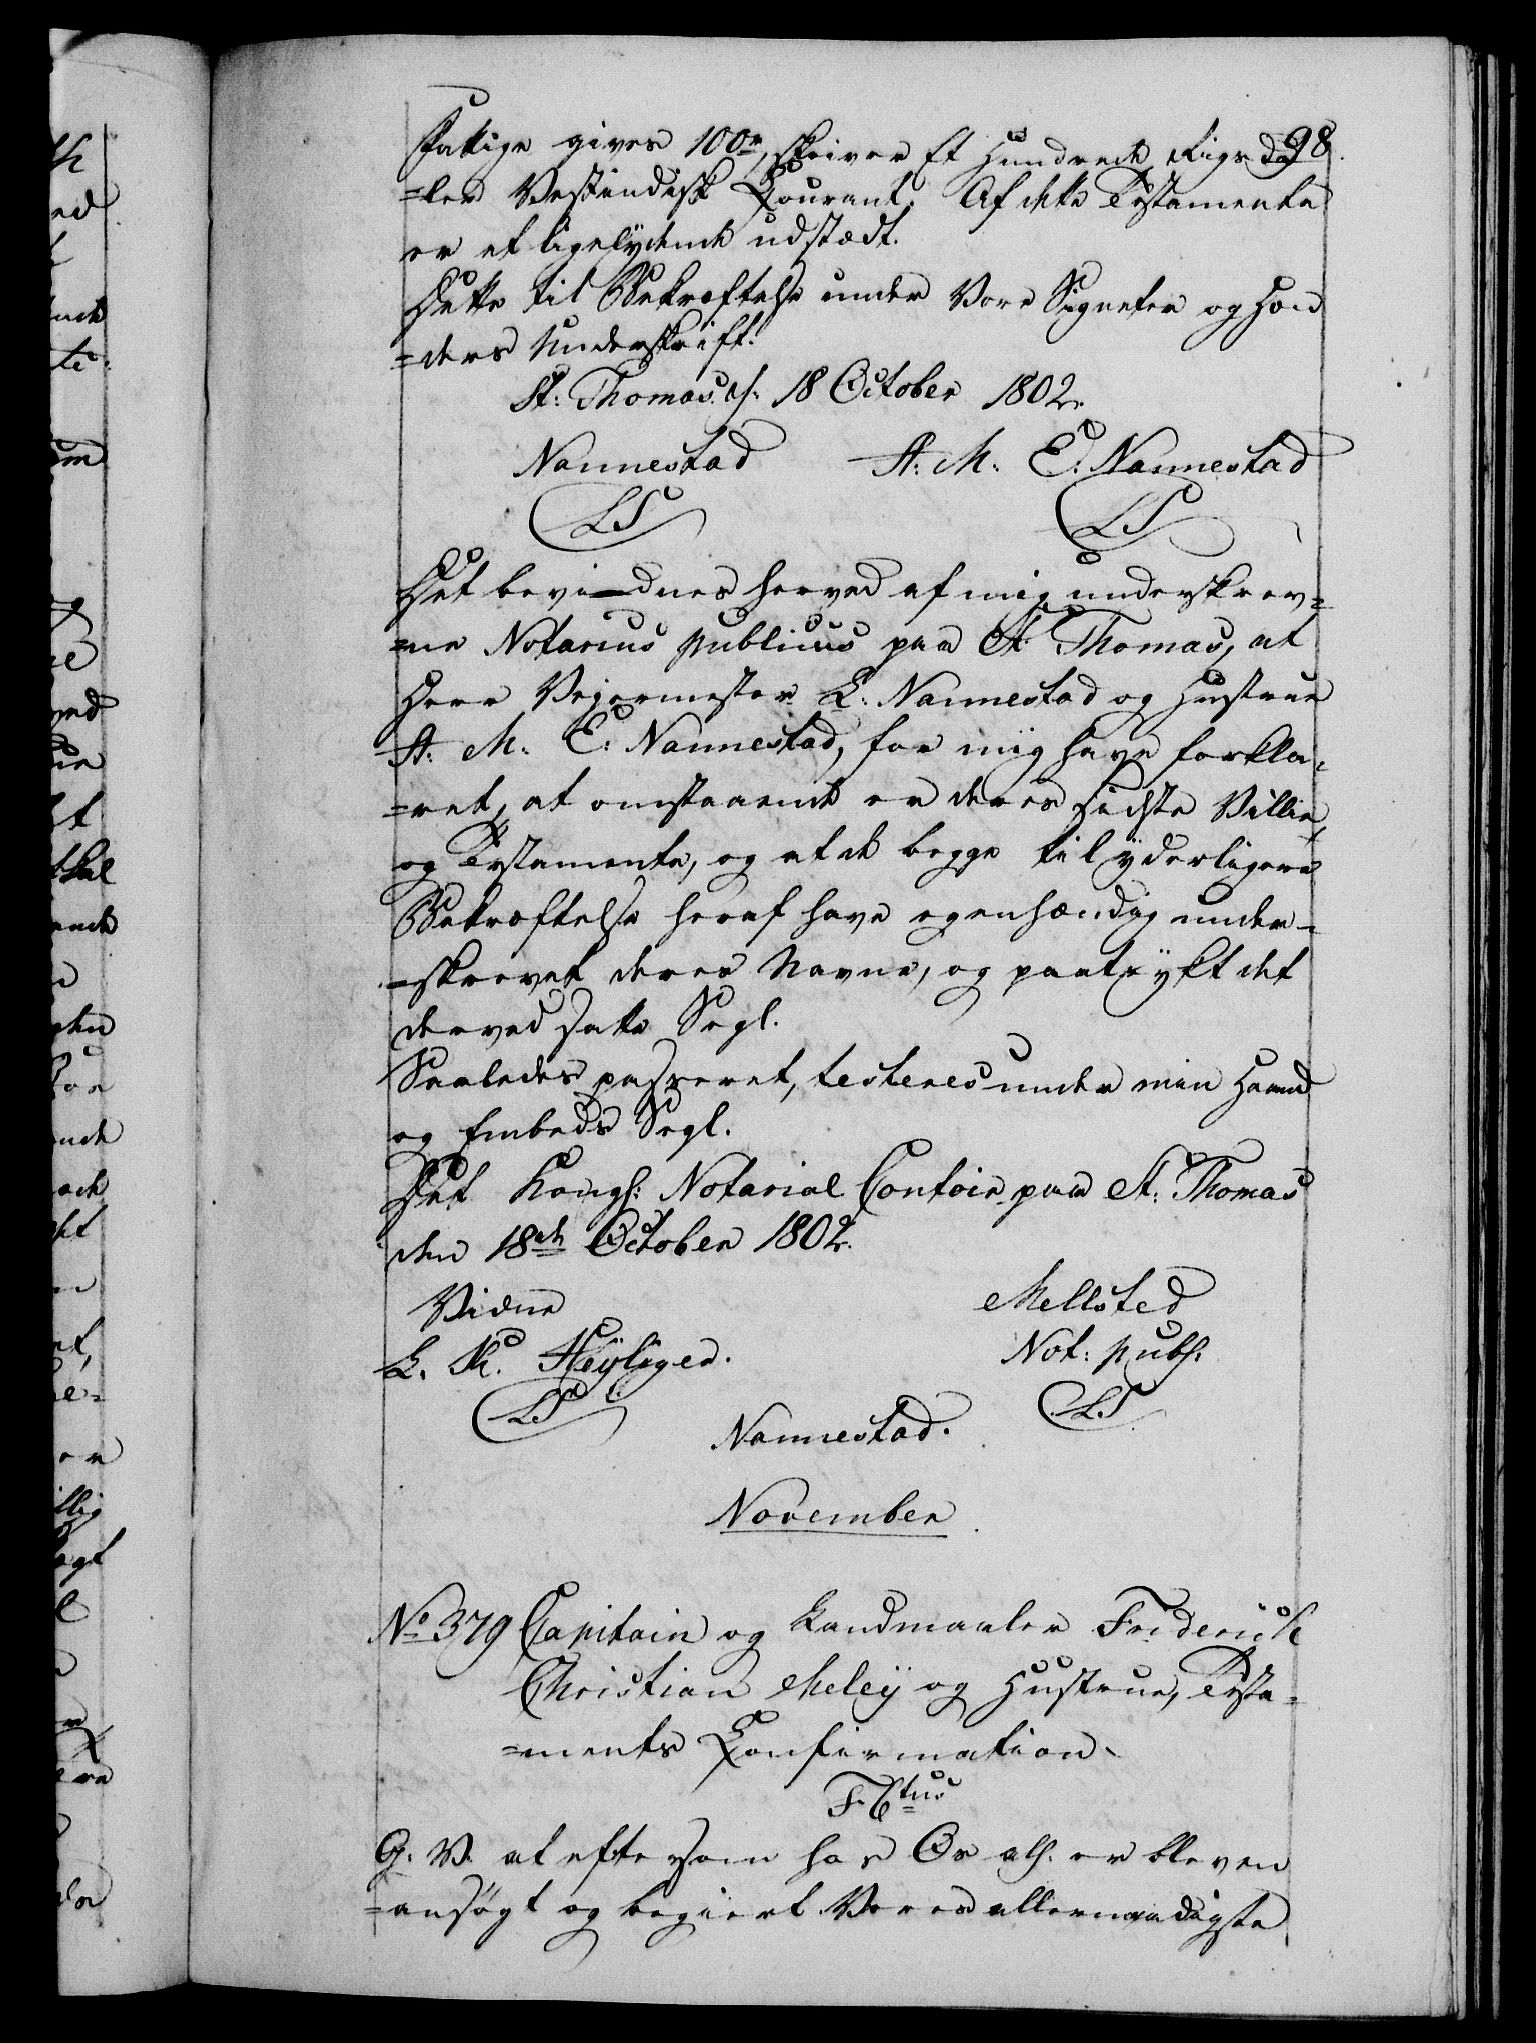 98.
Fattige gives 100r, skriver Et Hundrede Rigsda
=ler Vestindisk Courant. Af dette Testamente
er et ligelÿdende udstædt.
Dette til Bekræftelse under Vore Signeter og Hæn
=ders Underskrift.
St: Thomas d: 18 October 1802.
Nannestad A: M: E: Nannestad
LS LS
Det bevidnes herved af mig underskrev=
=ne Notarius publicus paa St: Thomas, at
Herr Vejermester L: Nannestad og Hustrue
A: M: E: Nannestad, for mig have forkla=
=ret, at omstaaende er deres sidste Villie
og Testamente, og at de begge til ÿderligere
Bekræftelse heraf have egenhændig under=
=skrevet deres Navne, og paatrykt det
derved satte Segl.
Saaledes passeret, testeres under min Haand
og Embeds Segl.
Det Kongl: Notarial Contoir paa St: Thomas
den 18de October 1802.
Vidne Mellsted
L. M. Heÿliger. Not: publ:
LS LS
Nannestad.
November.
No 379 Capitain og Landmaaler Friderich
Christian Meleÿ og Hustrue, Testa=
=ments Confirmation.
F. Ctus
G. V. at eftersom hos Os all. er bleven
ansøgt og begiert Vores allernaadigste